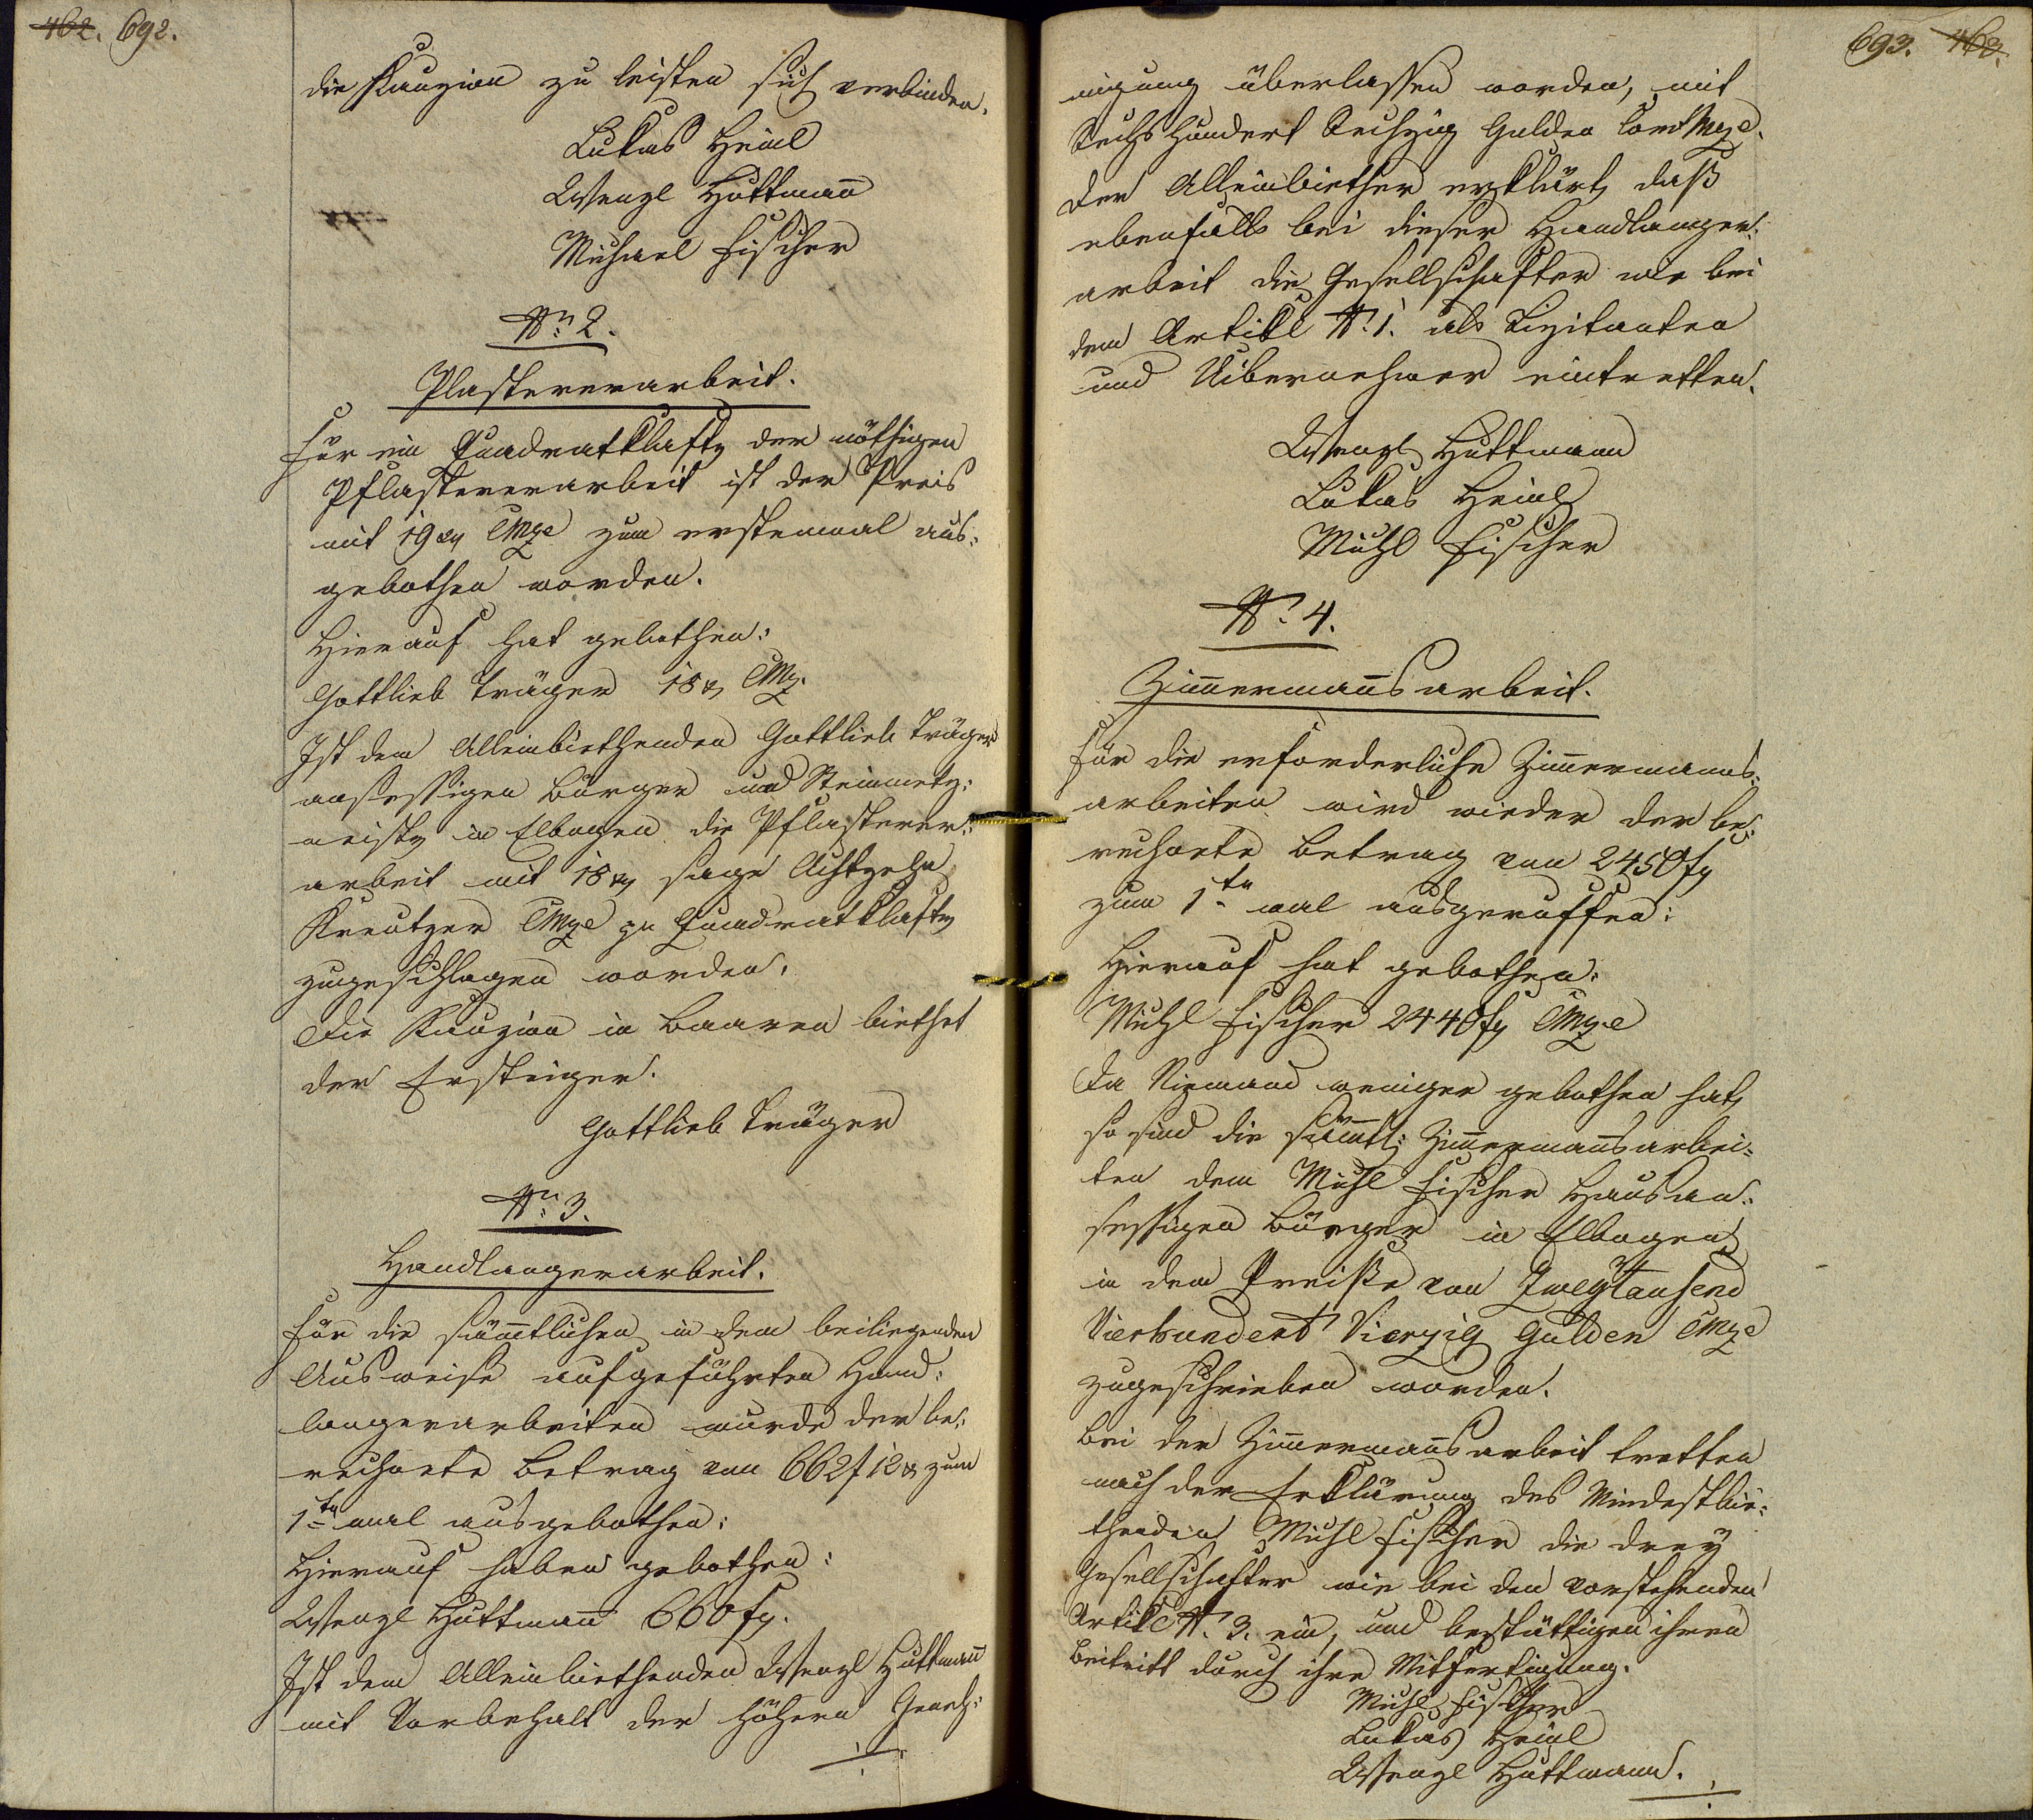 462. 692.
die Kauzion zu leisten sich verbinden.
Lukas Heinl
Wenzl Huttmann
Michael Fischer
Nro 2.
Plastererarbeit.
Für ein Quadratklafter der nöthigen
Pflastererarbeit ist der Preis
mit 19 xr CMze zum erstenmal aus=
gebothen worden.
Hierauf hat gebothen:
Gottlieb Träger 18 xr CMz.
Ist dem Alleinbiethenden Gottlieb Träger
ansessigen Bürger und Steinmetz=
meister in Elbogen die Pflasterer=
arbeit mit 18 xr sage Achtzehn
Kreutzer CMze pr Quadratklafter
zugeschlagen worden.
Die Kauzion in Baaren biethet
der Ersteiger.
Gottlieb Träger
Nro 3.
Handlangerarbeit.
Für die sämtlichen in dem beiliegenden
Ausweise aufgeführten Hand=
langerarbeiten wurde der be=
rechnete Betrag von 662 f 12 xr zum
1ten mal ausgebothen:
Hierauf haben gebothen:
Wenzl Huttmann 660 fr.
Ist dem Alleinbiethenden Wenzl Huttmann
mit Vorbehalt der höhern Geneh=
693. 463.
migung überlassen worden, mit
Sechs Hundert Sechzig Gulden Conv Mze.
Der Alleinbiether erklärt, daß
ebenfalls bei dieser Handlanger=
arbeit die Gesellschafter wie bei
dem Artikl N. 1. als Lizitanten
und Uibernehmer eintretten.
Wenzl Huttmann
Lukas Heinl
Michl Fischer
Nro 4.
Zimmermannsarbeit.
Für die erforderliche Zimmermanns=
arbeiten wird wieder der be=
rechnete Betrag von 2450 fr
zum 1ten mal ausgeruffen:
Hierauf hat gebothen:
Michl Fischer 2440 fr CMze
Da Niemand weniger gebothen hat,
so sind die sämtl: Zimmermannsarbei=
ten dem Michl Fischer Hausan=
sessigen Bürger in Elbogen
in dem Preiße von Zweytausend
Vierhundert Vierzig Gulden CMze
zugeschrieben worden.
Bei der Zimmermannsarbeit tretten
nach der Erklärung des Mindestbie=
thenden Michl Fischer die drey
Gesellschafter wie bei den vorstehenden
Artikl N. 3. ein, und bestättigen ihren
Beitritt durch ihre Mitfertigung.
Michl Fischer
Lukas Heinl
Wenzl Huttmann.